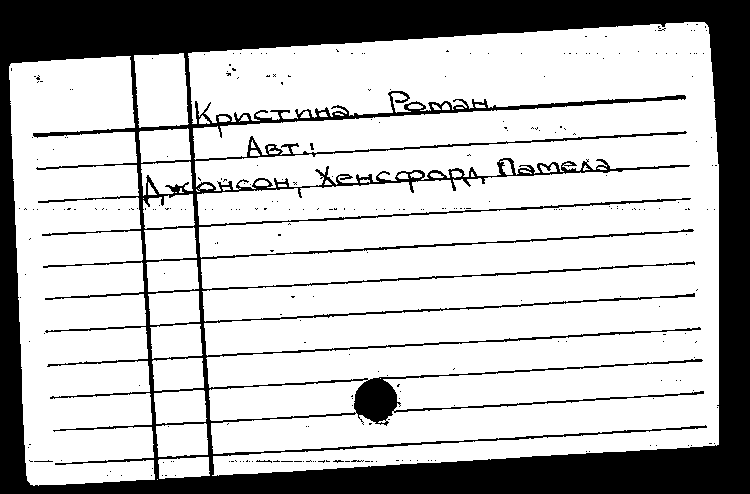 Кристина. Роман.
Авт.:
Джонсон, Хенсфорд Памела.